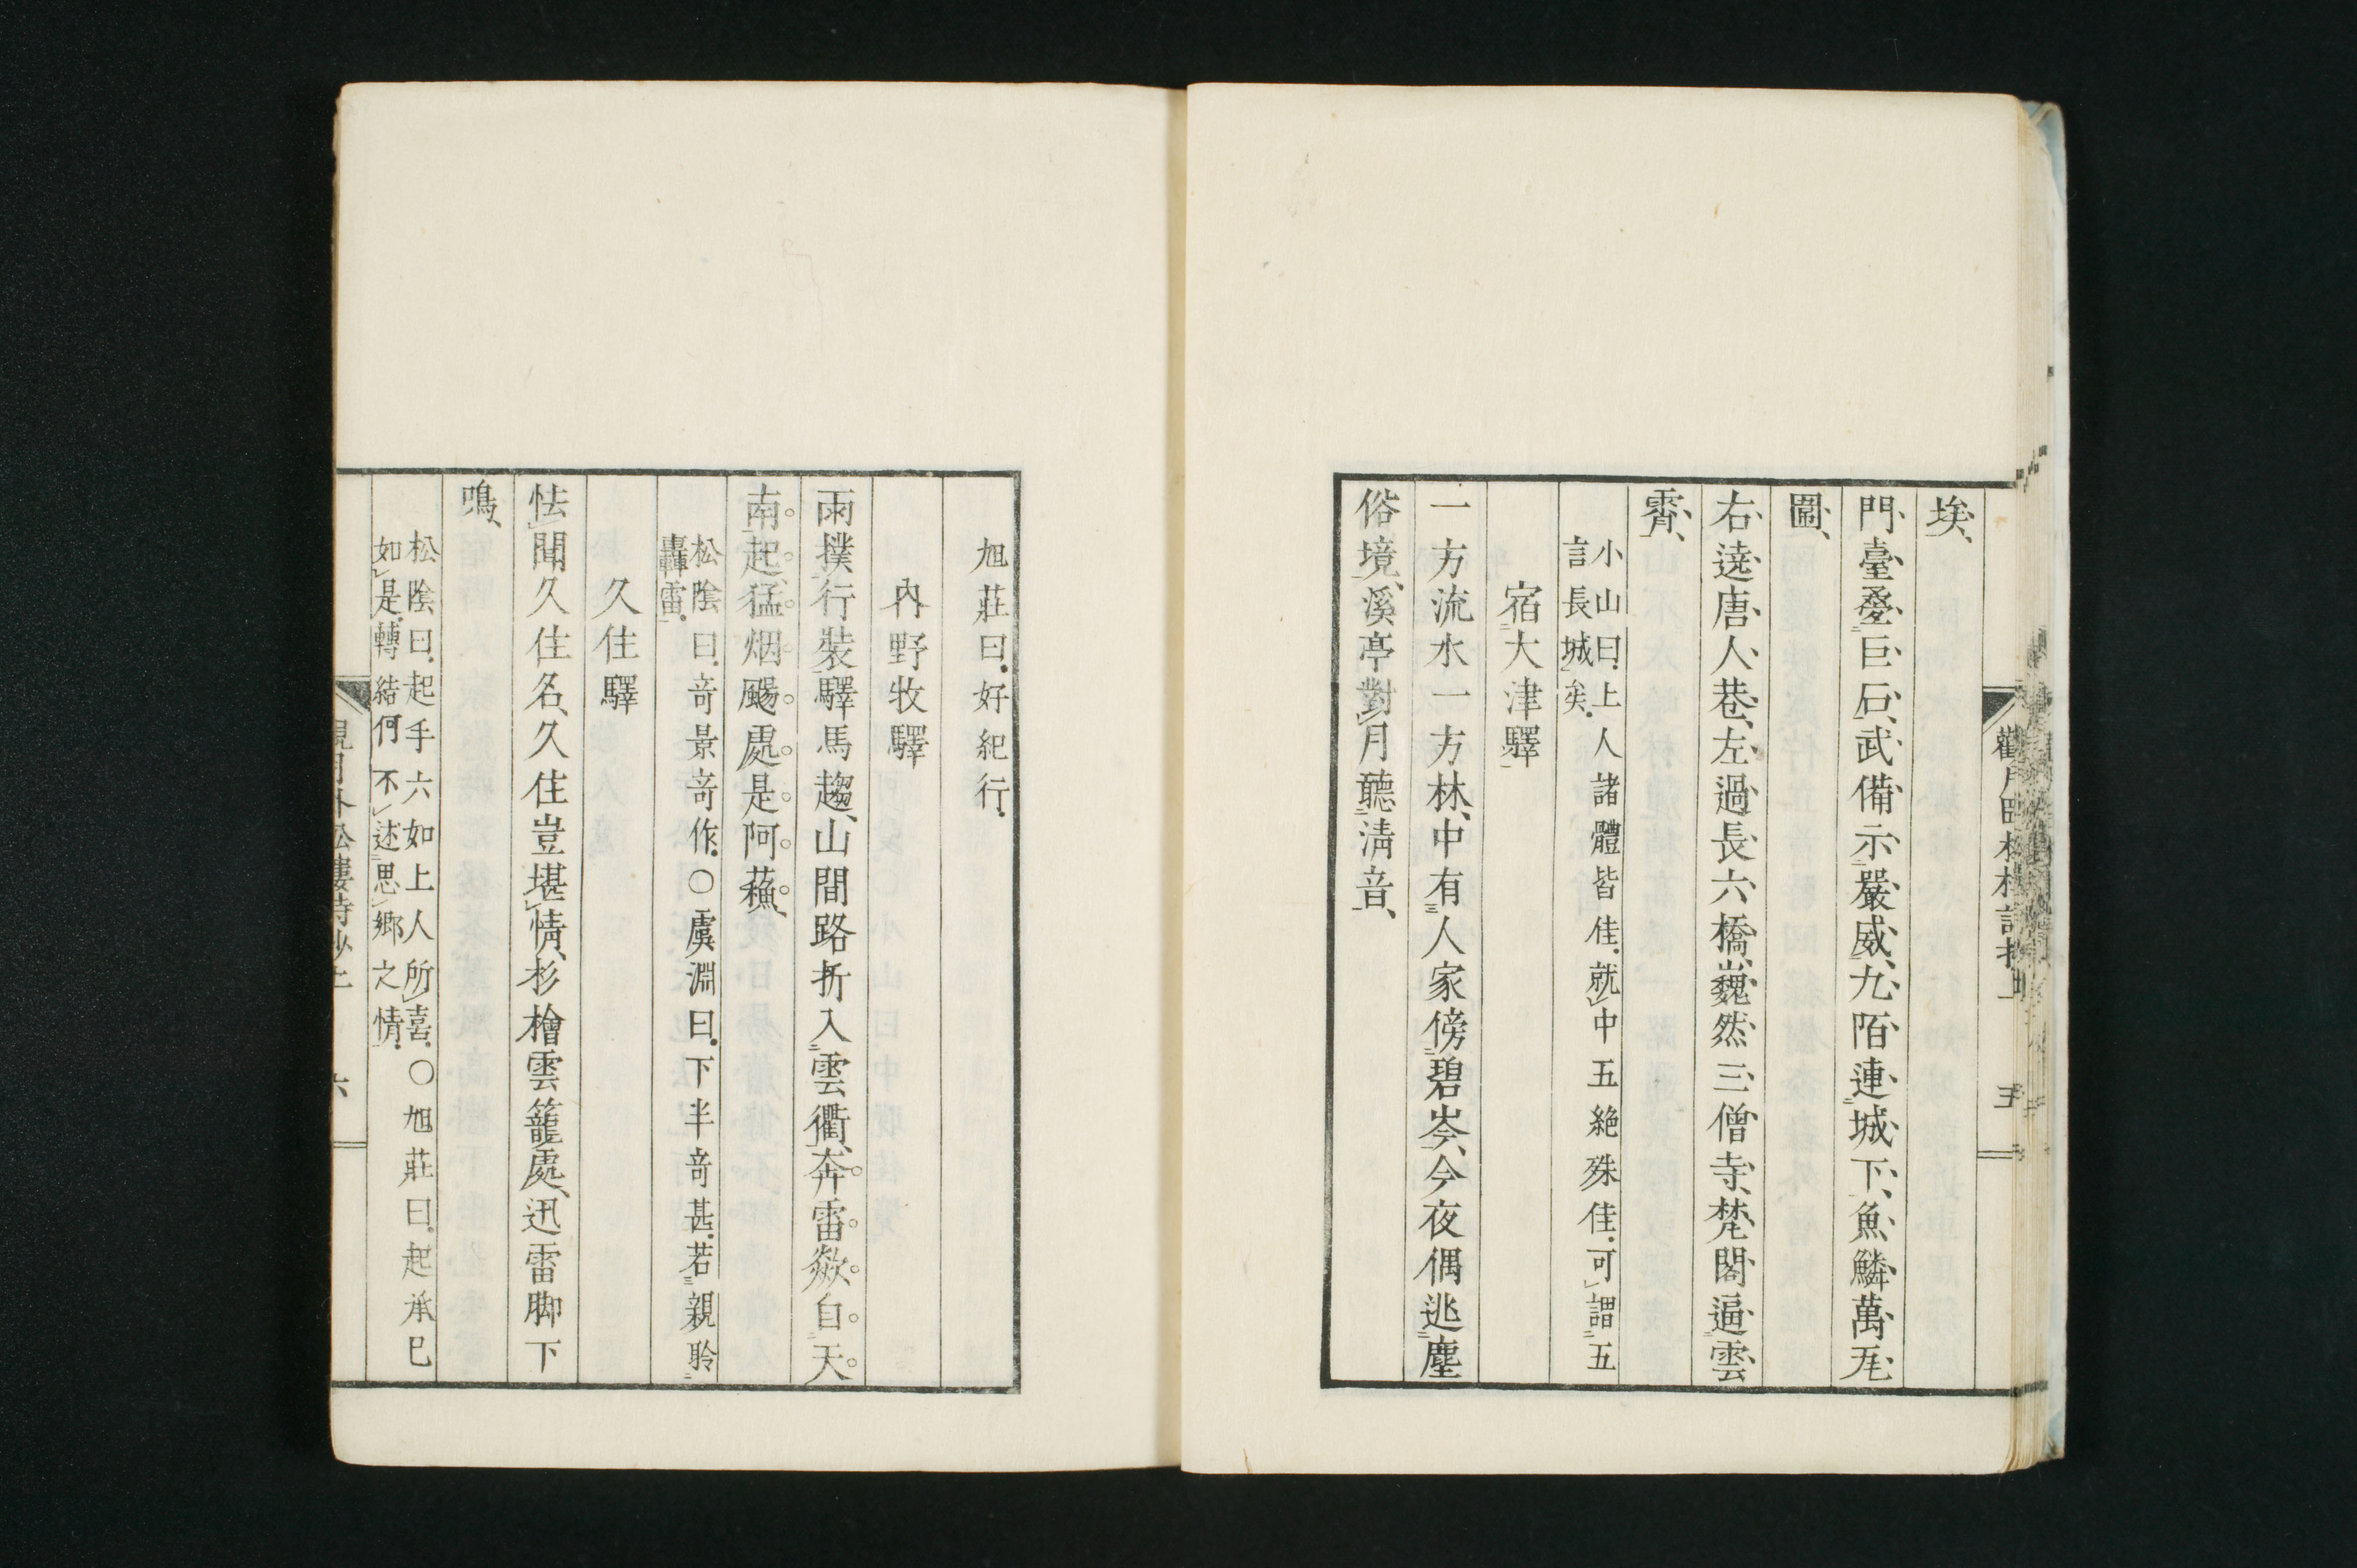 埃、
門、臺、壘巨石、武備示嚴威、九陌連城下、魚鱗萬瓦
圍、
右遶唐人巷、左過長六橋、巍然三僧寺、梵閣逼雲
霄、
小山曰.上人諸體皆佳.就中五絶殊佳.可謂五
言長城矣.
宿大津驛
一方流水一方林、中有人家傍碧岑、今夜偶逃塵
俗境、溪亭對月聽淸音、
五
旭莊曰.好紀行.
內野牧驛
雨撲行裝驛馬趨、山間路折入雲衢、奔雷欻自天
南起、猛烟颺處是阿蘓、
松陰曰.奇景奇作.○虞淵曰.下半奇甚.若親聆
轟雷.
久住驛
怯聞久住名、久住豈堪情、杉檜雲籠處、迅雷脚下
鳴、
松陰曰.起手六如上人所喜.○旭莊曰.起承巳
如是.轉結何不述思鄉之情.
六